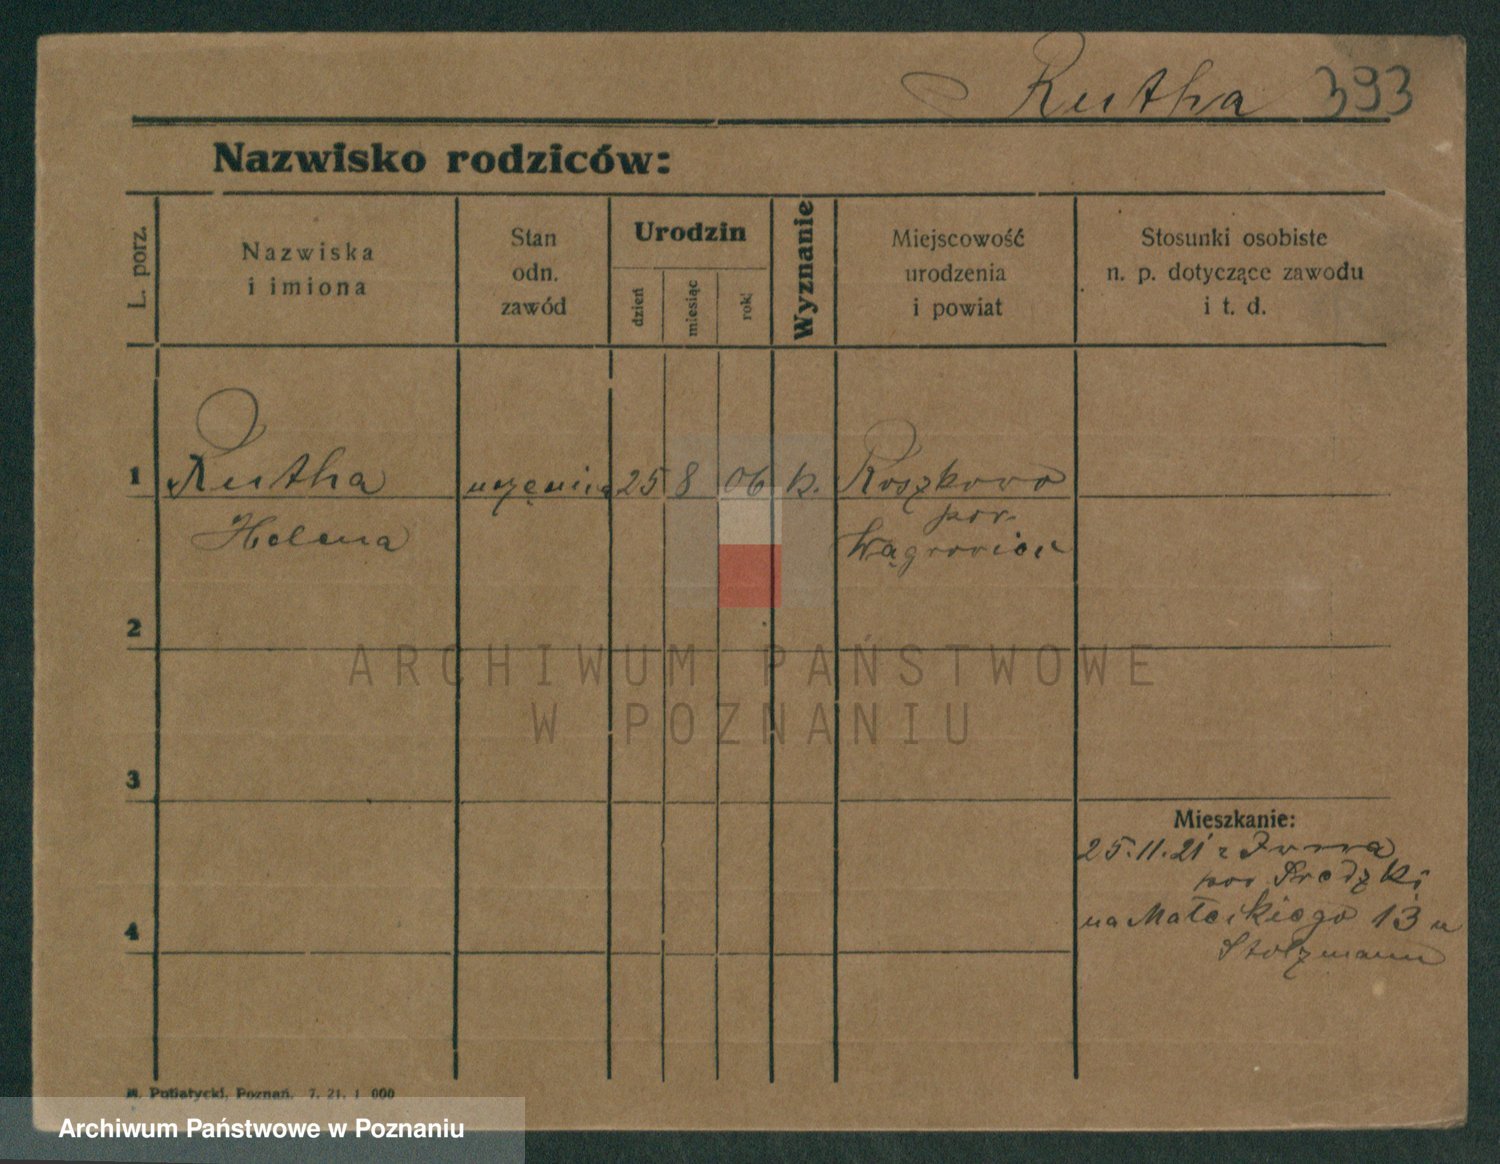 Rutha 393
Nazwisko rodziców:
L. porz.
Nazwiska
i imiona
Stan
odn.
zawód
Urodzin
dzień
miesiąc
rok
Wyznanie
Miejscowość
urodzenia
i powiat
Stosunki osobiste
n. p. dotyczące zawodu
i t. d.
1 Rutha uczenica 25 8 06 k. Roszkowo
pow.
Helena Wągrowiec
2
ARCHIWUM PAŃSTWOWE
W POZNANIU
3
Mieszkanie:
25.11.21 z
pow Srodzki
4 na Małeckiego 13 u
Stolzmann
Putiatycki, Poznań. 7. 21. 1 000
Archiwum Państwowe w Poznaniu